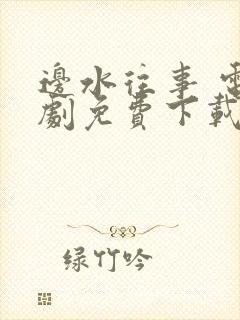 邊水往事 電
劇免費下載
绿竹吟